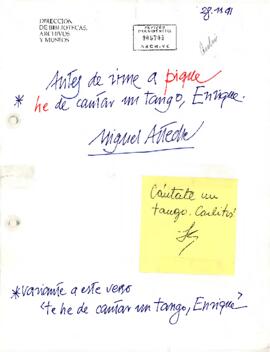 DIRECCION
DE BIBLIOTECAS,
ARCHIVOS
Y MUSEOS
28.11.91
PERIODO
PRESIDENCIAL
ARCHIVO
Archivo
Antes de irme a pique
* he de cantar un tango, Enrique.
Miguel Arteche
Cántate un
tango. Carlitos
* variante a este verso
"te he de cantar un tango, Enrique"